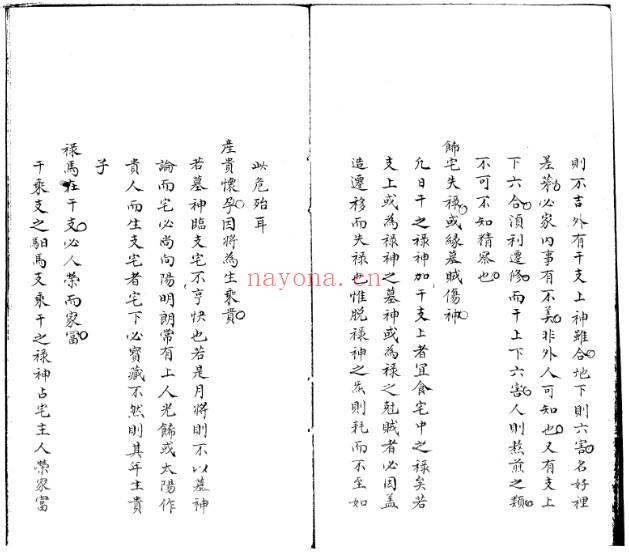 則不吉外有干支上神雖合地下則六害名好裡
差莠必家内事有不美非外人可知也又有支上
下六合須利遷修而干上下六害人則熬煎之類
不可不知精察也
飾宅失祿或緣墓賊傷神
凡日干之祿神加干支上者宜食宅中之祿矣若
支上或為祿神之墓神或為祿之尅賊者必因盖
造遷移而失祿也惟脱祿神之炁則耗而不至如
此危殆耳
產貴懷孕因將為生乘貴
若墓神臨支宅不亨快也若是月將則不以墓神
論而宅必尚向陽明朗常有上人光飾或太陽作
貴人而生支宅者宅下必寳藏不然則其年生貴
子
祿馬在干支必人榮而家富
干乘支之馹馬支乘干之祿神占宅主人榮家富
nayona.cn